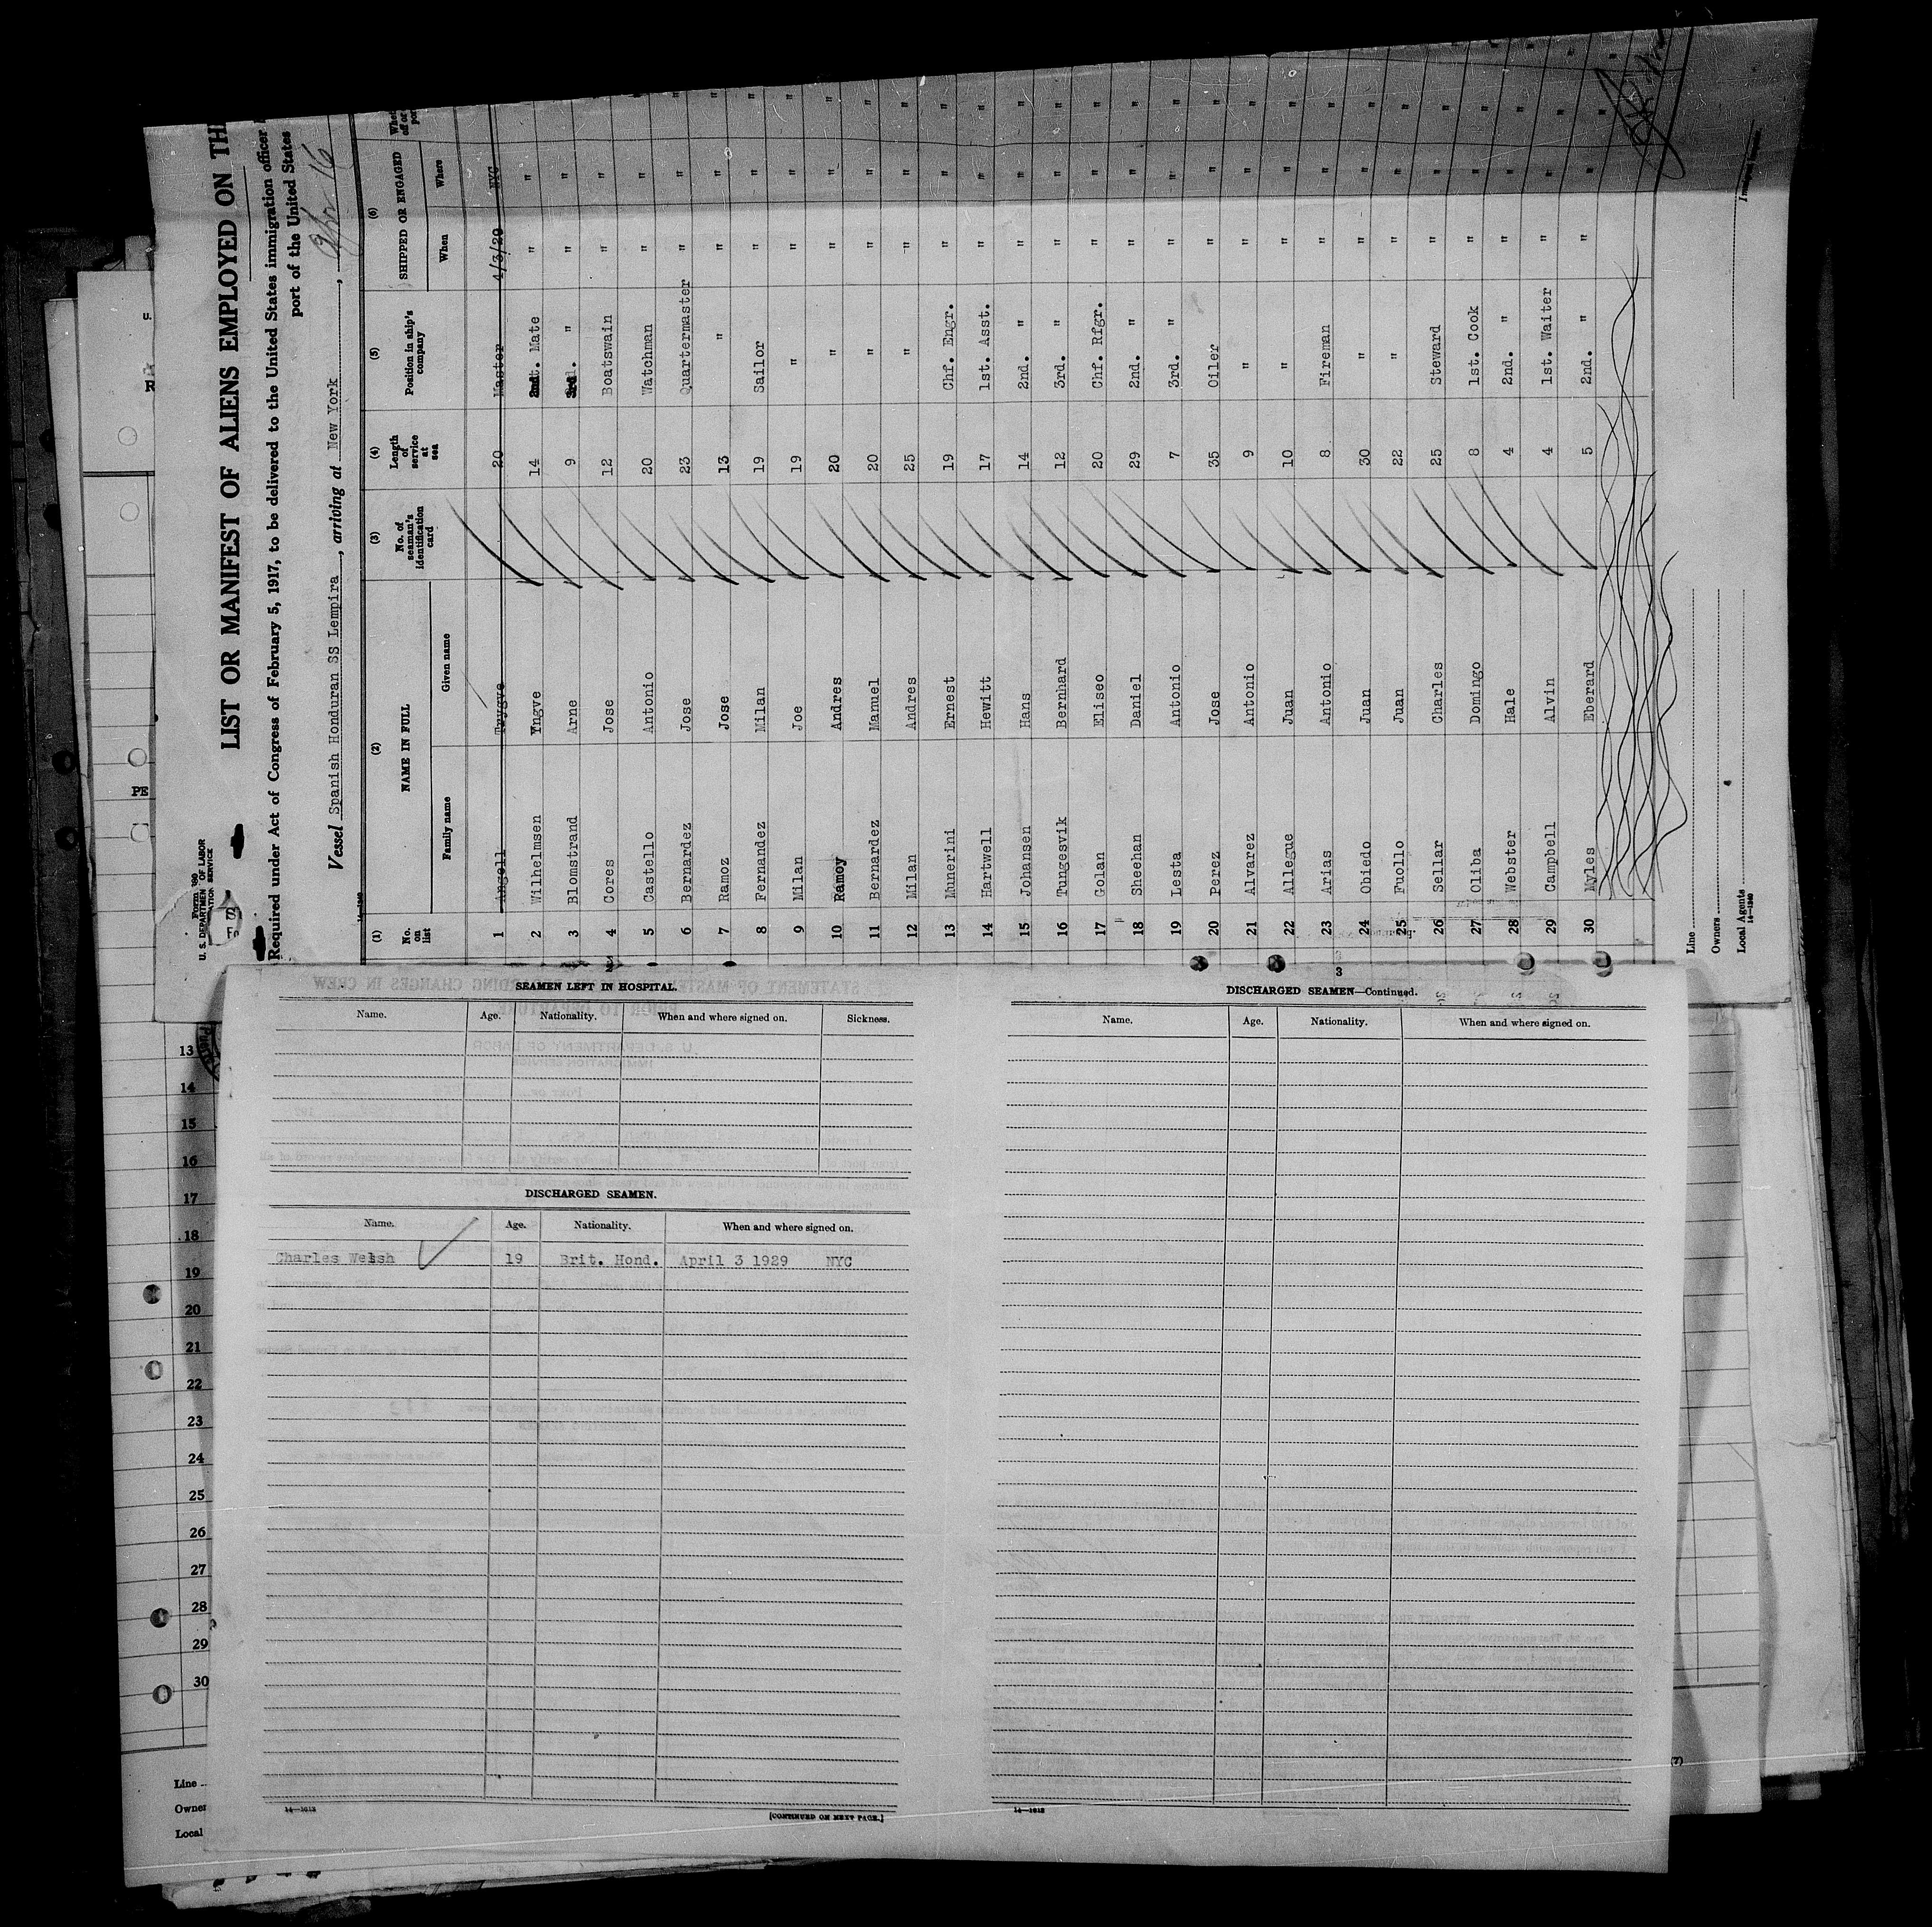 Form 680
U. S. DEPARTMENT OF LABOR
LIST OR MANIFEST OF ALIENS EMPLOYED ON TH
Required under Act of Congress of February 5, 1917, to be delivered to the United States immigration officer
port of the United States
Vessel Spanish Honduran SS Lempira, arriving at New York, Apr 16
(1) (2) (3) (4) (5) (6)
No. on list NAME IN FULL No. of seaman's identification card Length of service at sea Position in ship's company SHIPPED OR ENGAGED
Family name Given name When Where
1 Angell Trygve 20 Master 4/3/29 NYC
2 Wilhelmsen Yngve 14 Mate " " "
3 Blomstrand Arne 9 3rd. " " " "
4 Cores Jose 12 Boatswain " " "
5 Castello Antonio 20 Watchman " " "
6 Bernardez Jose 23 Quartermaster " " "
7 Ramoz Jose 13 " " " "
8 Fernandez Milan 19 Sailor " " "
9 Milan Joe 19 " " " "
10 Ramoy Andres 20 " " " "
11 Bernardez Manuel 20 " " " "
12 Milan Andres 25 " " " "
13 Munerini Ernest 19 Chf. Engr. " " "
14 Hartwell Hewitt 17 1st. Asst. " " "
15 Johansen Hans 14 2nd. " " " "
16 Tungesvik Bernhard 12 3rd. " " " "
17 Golan Eliseo 20 Chf. Rfgr. " " "
18 Sheehan Daniel 29 2nd. " " " "
19 Lesta Antonio 7 3rd. " " " "
20 Perez Jose 35 Oiler " " "
21 Alvarez Antonio 9 " " " "
22 Allegue Juan 10 " " " "
23 Arias Antonio 8 Fireman " " "
24 Obiedo Juan 30 " " " "
25 Fuollo Juan 22 " " " "
26 Sellar Charles 25 Steward " " "
27 Oliba Domingo 8 1st. Cook " " "
28 Webster Hale 4 2nd. " " " "
29 Campbell Alvin 4 1st. Waiter " " "
30 Myles Eberard 5 2nd. " " " "
Line
Owners
Local Agents
14—1240
PE
SEAMEN LEFT IN HOSPITAL.
Name. Age. Nationality. When and where signed on. Sickness.
DISCHARGED SEAMEN.
Name. Age. Nationality. When and where signed on.
Charles Welsh 19 Brit. Hond. April 3 1929 NYC
14—1613
[CONTINUED ON NEXT PAGE.]
3
DISCHARGED SEAMEN—Continued.
Name. Age. Nationality. When and where signed on.
14—1613
13
14
15
16
17
18
19
20
21
22
23
24
25
26
27
28
29
30
Line
Owner
Local
(7)